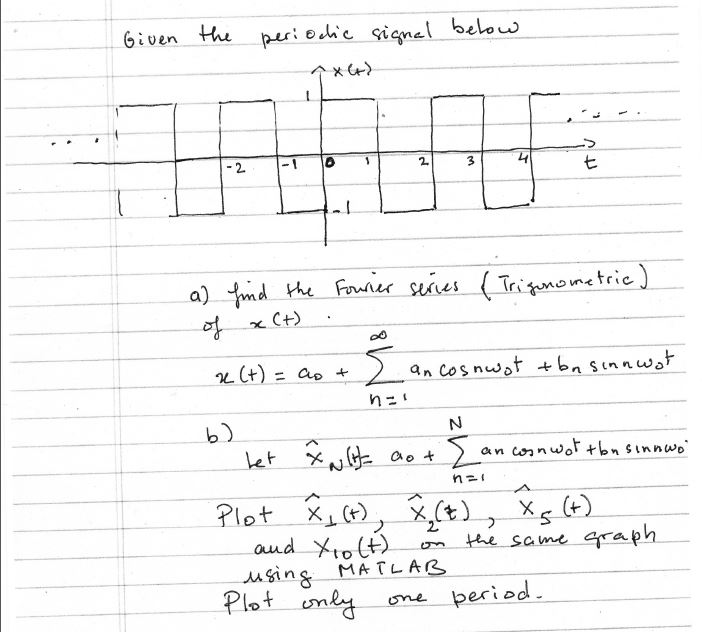 Given the periodic signal below
x(t)
1
-2 -1 0 1 2 3 4 t
-1
a) find the Fourier series (Trigonometric)
of x(t).
x(t) = a0 + ∞ Σ n=1 an cosnw0t + bn sinnw0t
b)
Let x̂N(t)= a0 + N Σ n=1 an cosnw0t + bn sinnw0
Plot x̂1(t), x̂2(t), x̂5(t)
and x10(t) on the same graph
using MATLAB
Plot only one period.